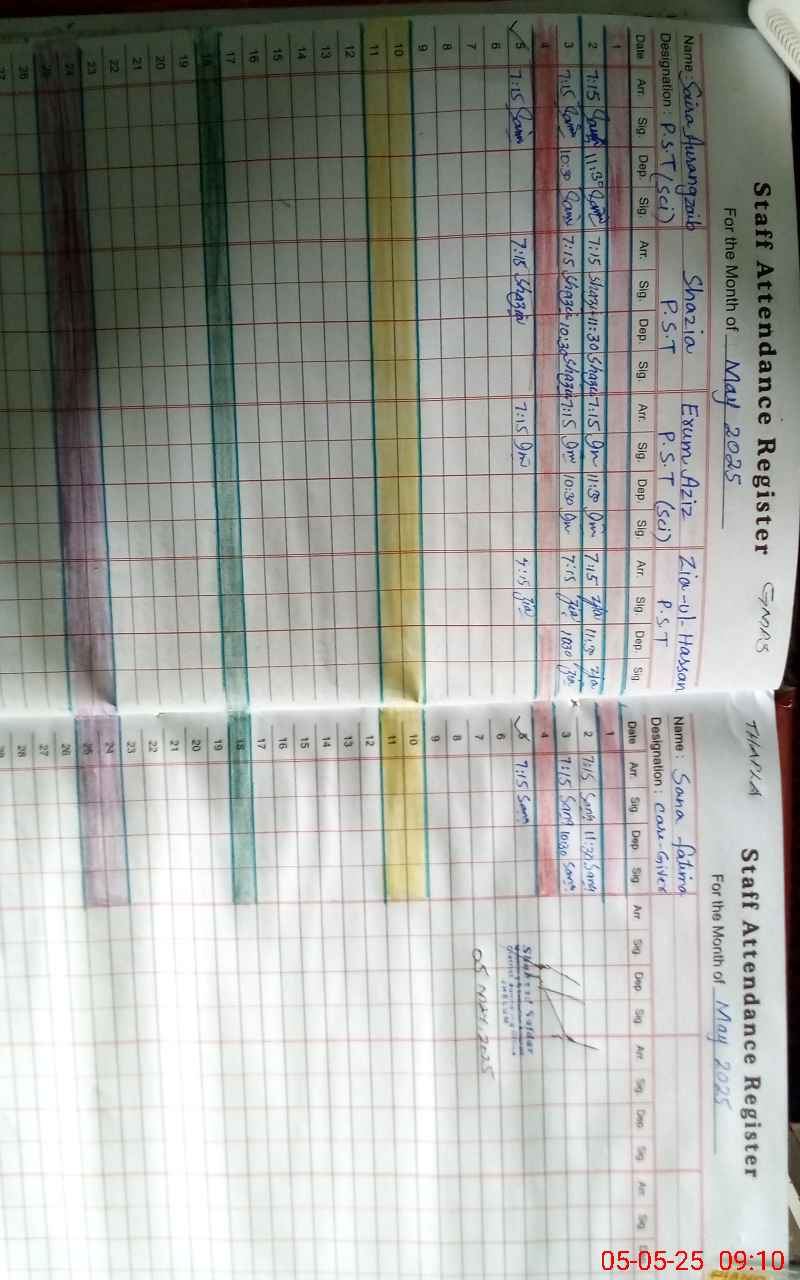 Staff Attendance Register GMPS
For the Month of May 2025
Name: Saira Aurangzaib Shazia Erum Aziz Zia-ul-Hassan
Designation: P.S.T (Sci) P.S.T P.S.T (Sci) P.S.T
Date Arr. Sig. Dep. Sig. Arr. Sig. Dep. Sig. Arr. Sig. Dep. Sig. Arr. Sig. Dep. Sig.
1
2 7:15 11:30 7:15 Shazia 11:30 Shazia 7:15 11:30 7:15 Zia 11:30 Zia
3 7:15 10:30 7:15 Shazia 10:30 Shazia 7:15 10:30 7:15 Zia 1030 Zia
4
5 7:15 7:15 Shazia 7:15 7:15 Zia
6
7
8
9
10
11
12
13
14
15
16
17
18
19
20
21
22
23
24
25
26
27
Staff Attendance Register
For the Month of May 2025
Name: Sana Fatima
Designation: Care-Giver
Date Arr. Sig. Dep. Sig. Arr. Sig. Dep. Sig. Arr. Sig. Dep. Sig. Arr. Sig.
1
2 7:15 Sana 11:30 Sana
3 7:15 Sana 1030 Sana
4
5 7:15 Sana
6
7
8
9
10
11
12
13
14
15
16
17
18
19
20
21
22
23
24
25
26
27
28
Shaheed Safdar
05 MAY 2025
05-05-25 09:10